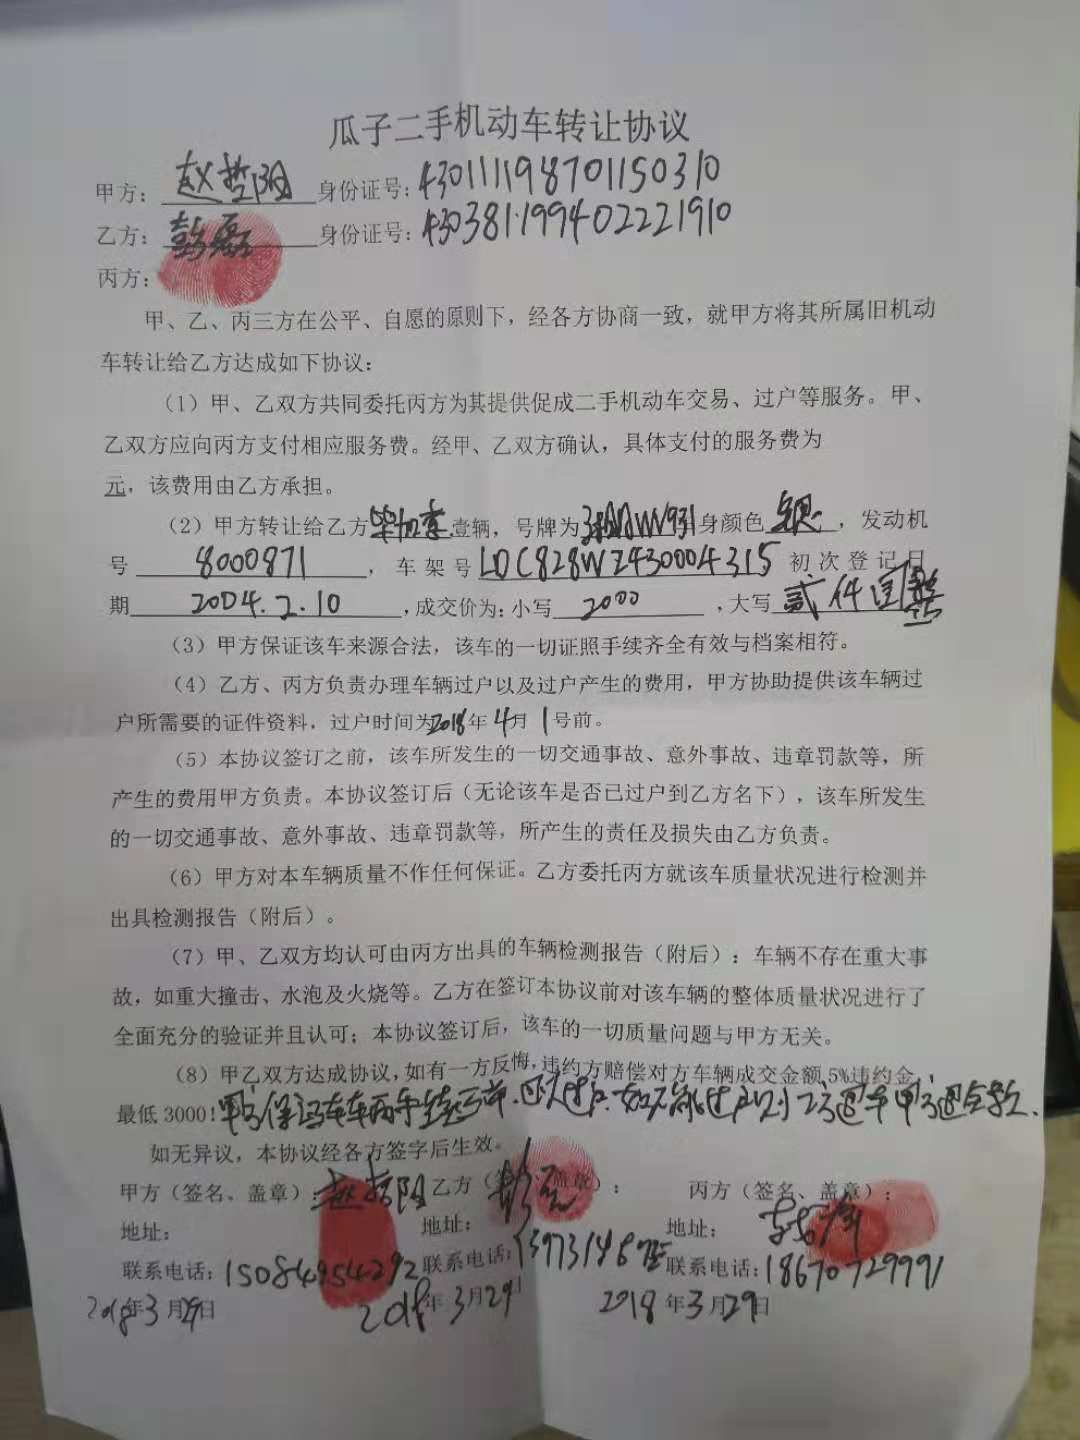 瓜子二手机动车转让协议
甲方：赵哲阳 身份证号：430111198701150310
乙方：彭磊 身份证号：430381199402221910
丙方：
甲、乙、丙三方在公平、自愿的原则下，经各方协商一致，就甲方将其所属旧机动
车转让给乙方达成如下协议：
（1）甲、乙双方共同委托丙方为其提供促成二手机动车交易、过户等服务。甲、
乙双方应向丙方支付相应服务费。经甲、乙双方确认，具体支付的服务费为
元，该费用由乙方承担。
（2）甲方转让给乙方 壹辆，号牌为 身颜色 银，发动机
号 8000871，车架号 LDC828WZ430004315 初次登记日
期 2004.2.10，成交价为：小写 2000，大写 贰仟圆整
（3）甲方保证该车来源合法，该车的一切证照手续齐全有效与档案相符。
（4）乙方、丙方负责办理车辆过户以及过户产生的费用，甲方协助提供该车辆过
户所需要的证件资料，过户时间为2018年4月1号前。
（5）本协议签订之前，该车所发生的一切交通事故、意外事故、违章罚款等，所
产生的费用甲方负责。本协议签订后（无论该车是否已过户到乙方名下），该车所发生
的一切交通事故、意外事故、违章罚款等，所产生的责任及损失由乙方负责。
（6）甲方对本车辆质量不作任何保证。乙方委托丙方就该车质量状况进行检测并
出具检测报告（附后）。
（7）甲、乙双方均认可由丙方出具的车辆检测报告（附后）：车辆不存在重大事
故，如重大撞击、水泡及火烧等。乙方在签订本协议前对该车辆的整体质量状况进行了
全面充分的验证并且认可；本协议签订后，该车的一切质量问题与甲方无关。
（8）甲乙双方达成协议，如有一方反悔，违约方赔偿对方车辆成交金额5%违约金，
最低3000！甲方保证车 手续 过户.如不能过户则乙方退车甲方退全款.
如无异议，本协议经各方签字后生效。
甲方（签名、盖章）：赵哲阳 乙方（签名、盖章）：彭磊 丙方（签名、盖章）：
地址： 地址： 地址：
联系电话：15084954292 联系电话： 联系电话：18670729991
2018年3月29日 2018年3月29日 2018年3月29日